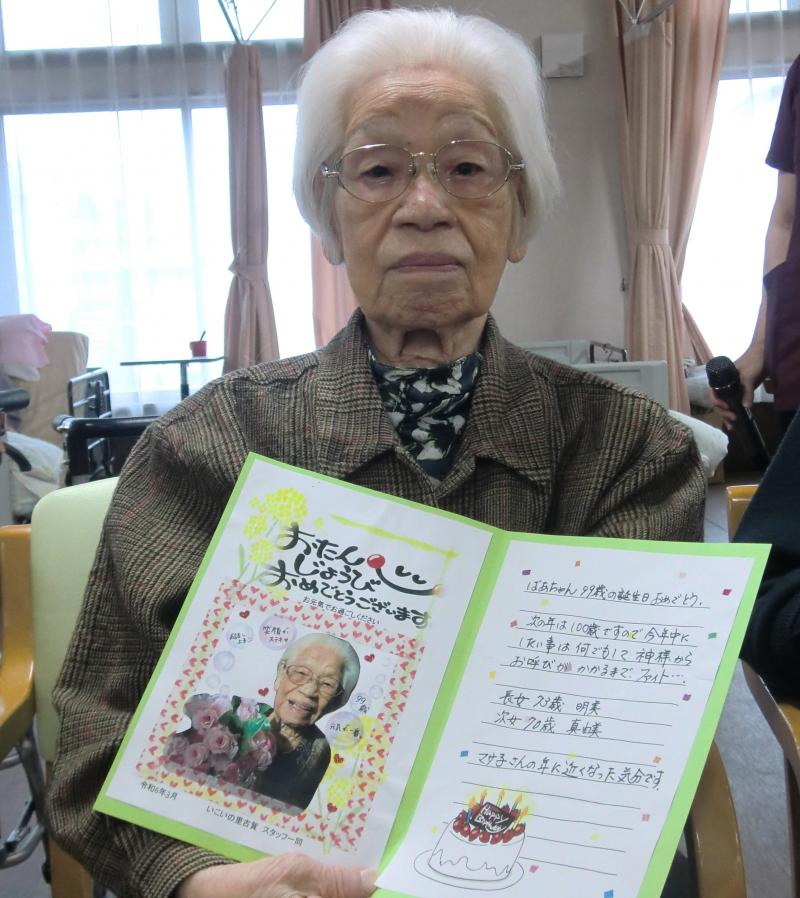 おたん
じょうび
おめでとうございます
お元気でお過ごしください
笑顔が
ステキ
99
歳
元気が一番
令和6年3月
いこいの里古賀 スタッフ一同
ばあちゃん 99歳の誕生日おめでとう。
次の年は100歳ですので今年中に
したい事は何でもして神様から
お呼びがかかるまでファイト…
長女 73歳 明美
次女 70歳 真由美
マサ子さんの年に近くなった気分です。
Happy
Birthday